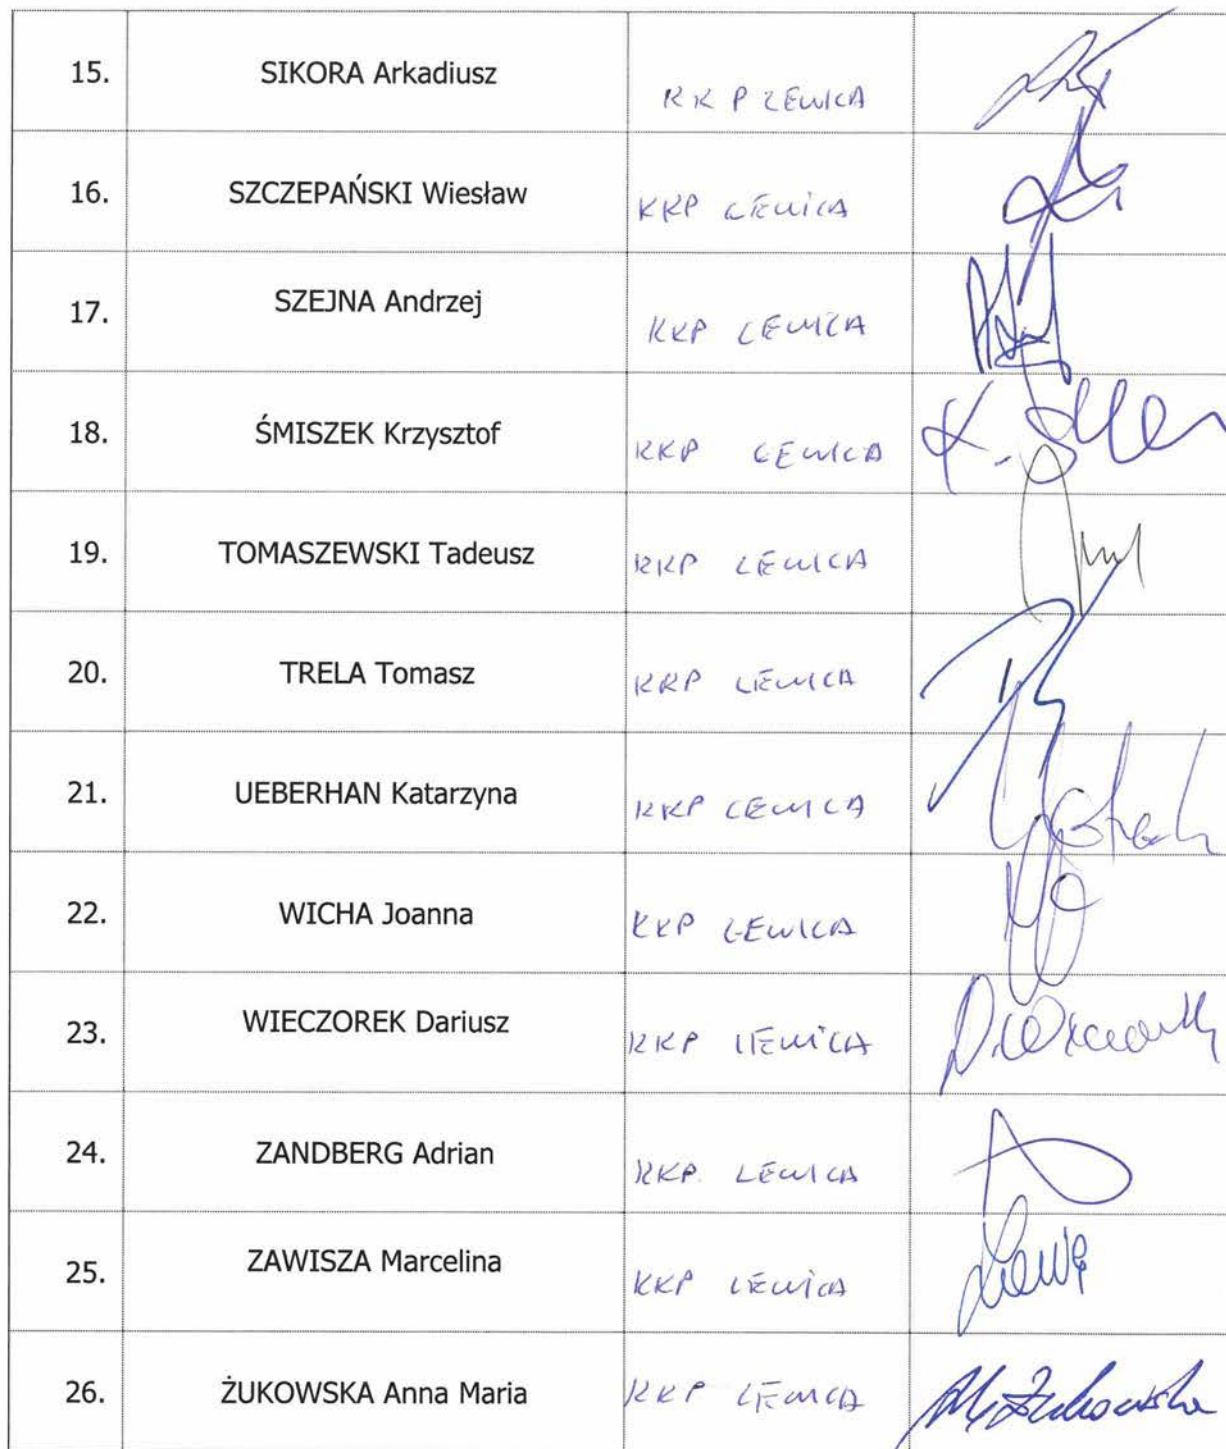 15. SIKORA Arkadiusz KKP LEWICA
16. SZCZEPAŃSKI Wiesław KKP LEWICA
17. SZEJNA Andrzej KKP LEWICA
18. ŚMISZEK Krzysztof KKP LEWICA
19. TOMASZEWSKI Tadeusz KKP LEWICA
20. TRELA Tomasz KKP LEWICA
21. UEBERHAN Katarzyna KKP LEWICA
22. WICHA Joanna KKP LEWICA
23. WIECZOREK Dariusz KKP LEWICA
24. ZANDBERG Adrian KKP LEWICA
25. ZAWISZA Marcelina KKP LEWICA
26. ŻUKOWSKA Anna Maria KKP LEWICA